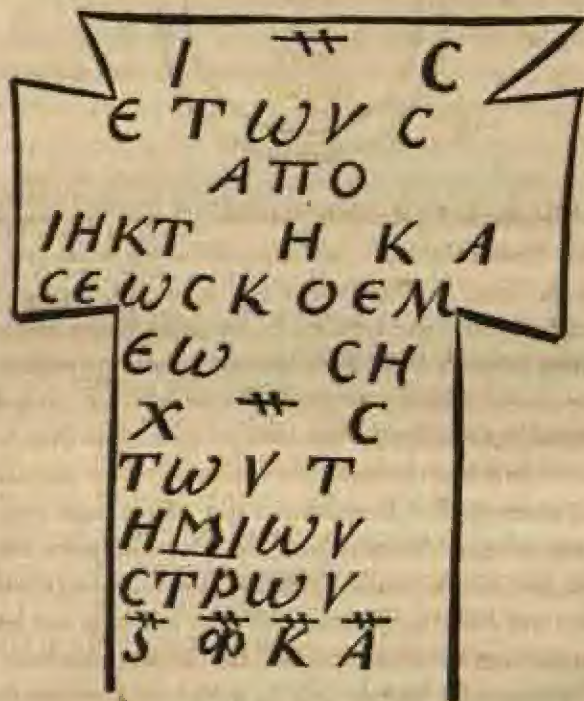 Ι C
Є Τ ω Ν C
Α Π Ο
ΙΗΚΤ Η Κ Α
CЄωCΚ Ο Є Μ
Єω CΗ
Χ C
Τω Ν Τ
ΗΜΙωΝ
CΤΡωΝ
Ϛ Φ Κ Α